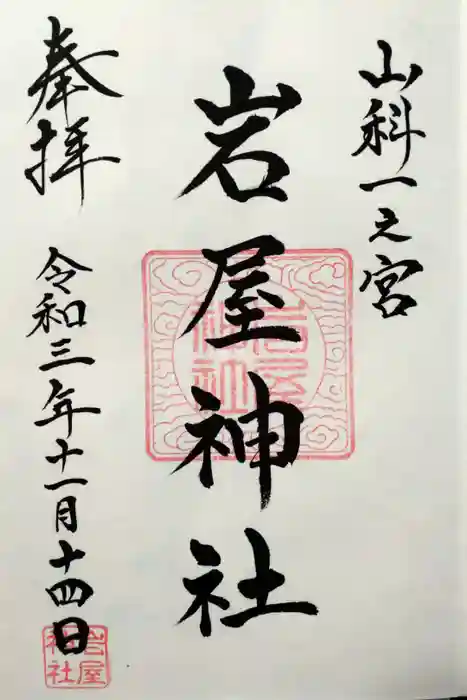 山科一之宮
岩屋神社
岩屋
神社
奉拝
令和三年十一月十四日
岩屋
神社